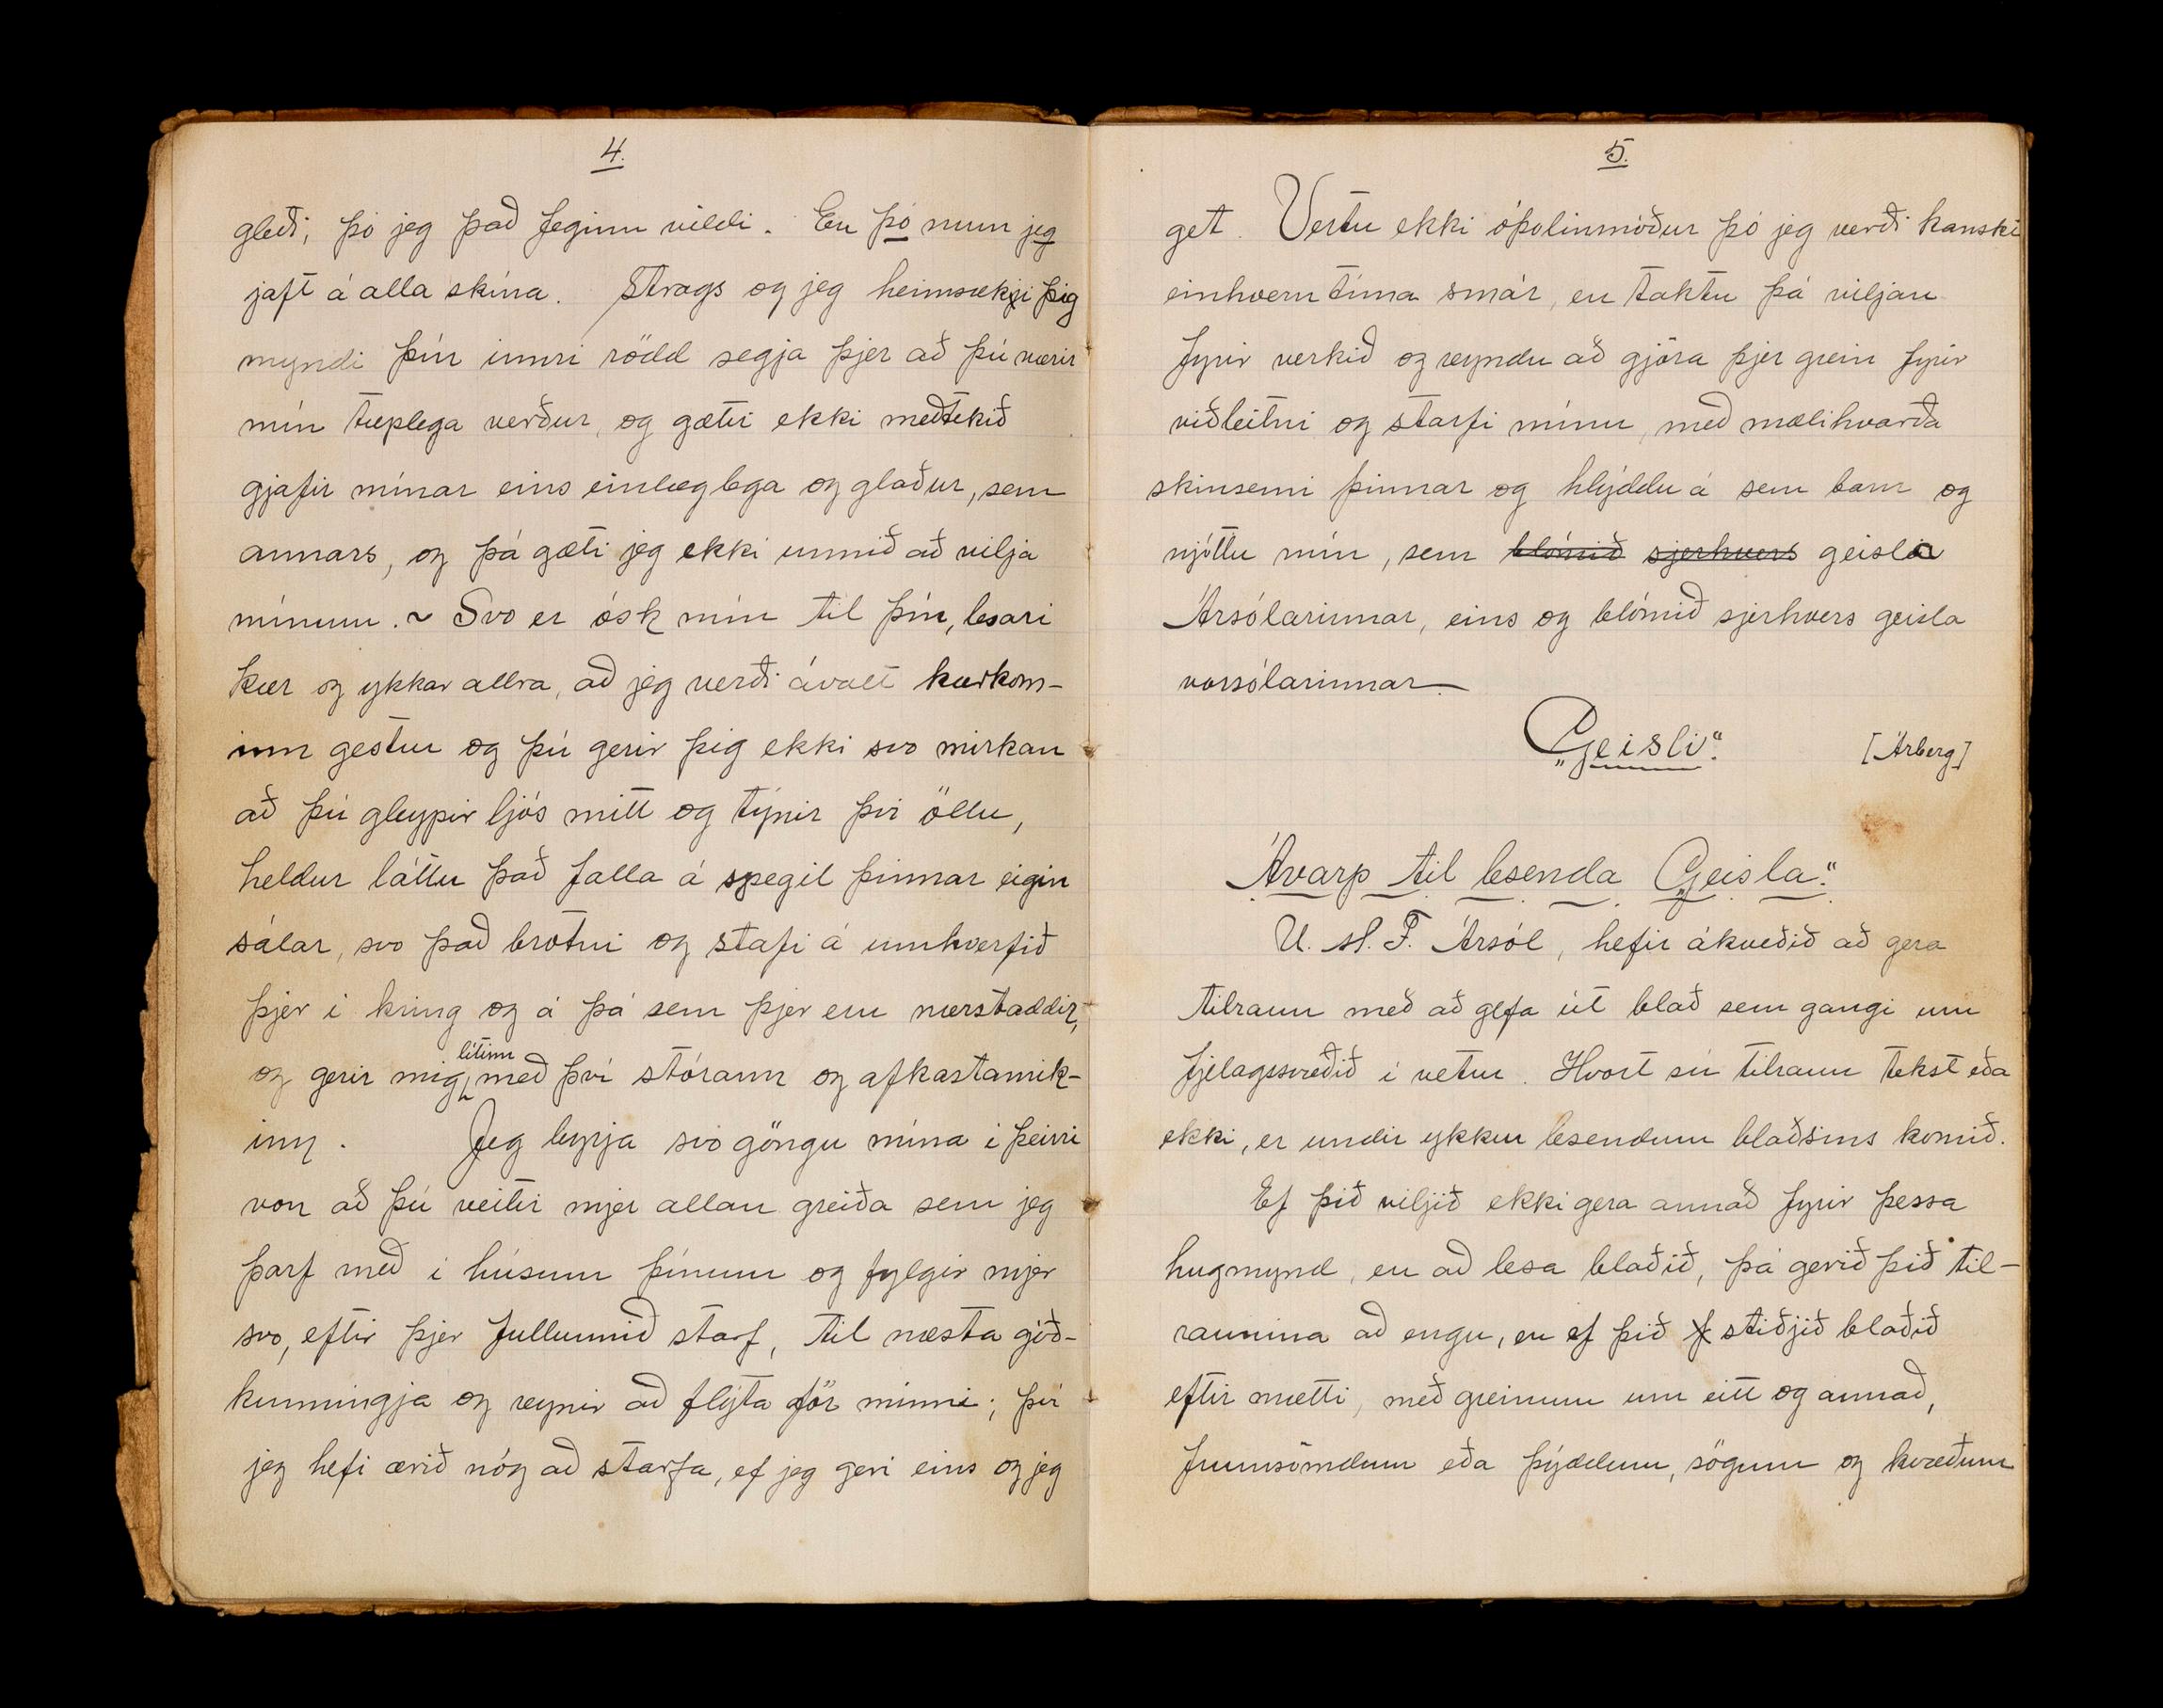 4.
gleði, þó jeg það feginn vildi. En þó mun jeg
jaft á alla skína. Strags og jeg heimsæki þig
myndi þín innri rödd segja þjer að þú værir
mín tæplega verður, og gætir ekki meðtekið
gjafir mínar eins einlæglega og glaður, sem
annars, og þá gæti jeg ekki unnið að vilja
mínum. ~ Svo er ósk mín til þín, lesari
kær og ykkar allra, að jeg verði ávalt kærkom-
inn gestur og þú gerir þig ekki svo mirkan
að þú gleypir ljós mitt og týnir því öllu,
heldur láttu það falla á spegil þinnar eigin
sálar, svo það brotni og stafi á umhverfið
þjer í kring og á þá sem þjer eru nærstaddir,
og gerir mig lítinn með því stórann og afkastamik-
inn. Jeg byrja svo göngu mína í þeirri
von að þú veitir mjer allan greiða sem jeg
þarf með í húsum þínum og fylgir mjer
svo, eftir þjer fullunnið starf, til næsta góð-
kunningja og reynir að flýta för minni; því
jeg hefi ærið nóg að starfa, ef jeg geri eins og jeg
5.
get. Vertu ekki óþolinmóður þó jeg verði kanski
einhverntíma smár, en taktu þá viljan
fyrir verkið og reyndu að gjöra þjer grein fyrir
viðleitni og starfi mínu, með mælihvarða
skinsemi þinnar og hlýddu á sem barn og
njóttu mín, sem blómið sjerhvers geisla
Ársólarinnar, eins og blómið sjerhvers geisla
vorsólarinnar.
„Geisli". [Árberg]
Ávarp til lesenda „Geisla".
U. M. F. Ársól, hefir ákveðið að gera
tilraun með að gefa út blað sem gangi um
fjelagssvæðið í vetur. Hvort sú tilraun tekst eða
ekki, er undir ykkur lesendum blaðsins komið.
Ef þið viljið ekki gera annað fyrir þessa
hugmynd, en að lesa blaðið, þá gerið þið til-
raunina að engu, en ef þið stiðjið blaðið
eftir mætti, með greinum um eitt og annað,
frumsömdum eða þýddum, sögum og kvæðum